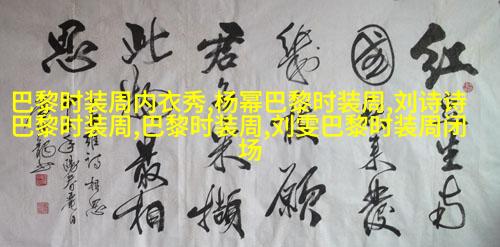 巴黎时装周内衣秀,杨幂巴黎时装周,刘诗诗
巴黎时装周,巴黎时装周,刘雯巴黎时装周闭
场
红豆生南
國春来發
幾枝願
君多采撷
此物最相
思
维诗相思